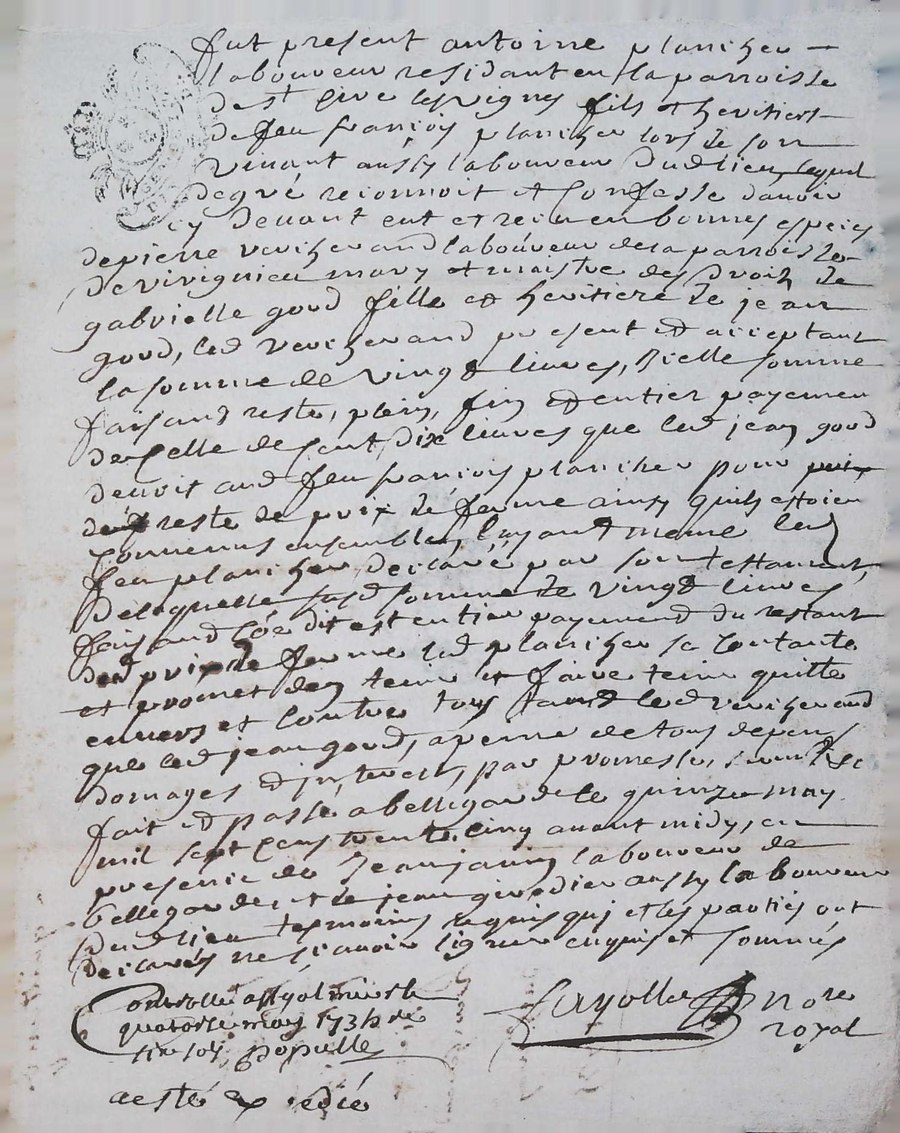 fut present antoine plancher
laboureur residant en la parroisse
de st cire les vignes fils et heritiers
de feu francois plancher lors de son
vivant aussy laboureur dud lieu, lequel
de gré reconnoit et confesse d'avoir
cy devant eut et receu en bonnes especes
de pierre vercherand laboureur de la parroisse
de virignieu mary et maistre des droits de
gabrielle goud fille et heritiere de jean
goud, led vercherand present et acceptant
la somme de vingt livres, Dicelle somme
faisand reste, plein, fin et entier payemen
de celle de cent dix livres que led jean goud
devoit aud feu francois plancher pour
reste de prix de ferme ainsy quils estoien
convenus ensemble, layant meme led
feu plancher declaré par son testament,
De laquelle susd somme de vingt livres
faisand dit est entier payement du restant
dud prix de ferme led plancher se contante
et promet den tenir et faire tenir quitte
envers et contre tous tand led vercherand
que led jean goud, a peine de tous depens
domages et interets, par promesse, &c
fait et passé a bellegarde le quinze may
mil sept cens trente cinq avant midy, en
presence de jean laboureur de
bellegarde et de jean girodier aussy laboureur
dud lieu tesmoins lequis qui et les parties ont
declarés ne scavoir signer enquis et sommés
Controllé a st galmier le
quatorse may 1735 de
six sols populle
Fayolle nore
royal
a esté expedié